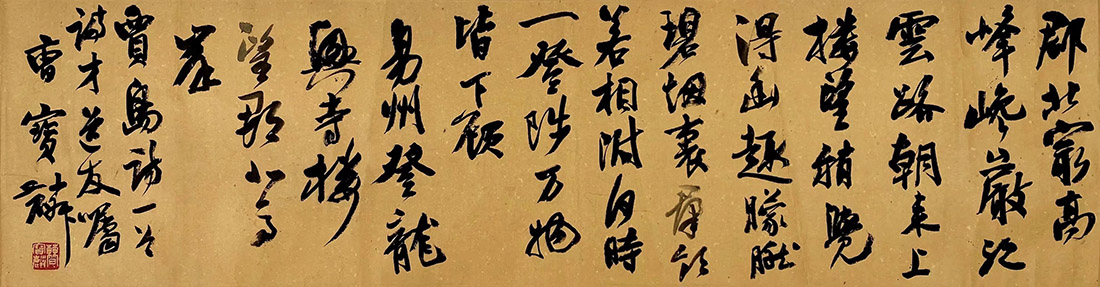 郡北最高
峰巉巖絕
雲路朝来上
樓望稍覺
得幽趣朦朧
碧烟裏群嶺
若相附何時
一登陟万物
皆下顧
易州登龍
興寺樓
望郡北高
峯
賈島詩一首
詩才道友囑
曹寶麟